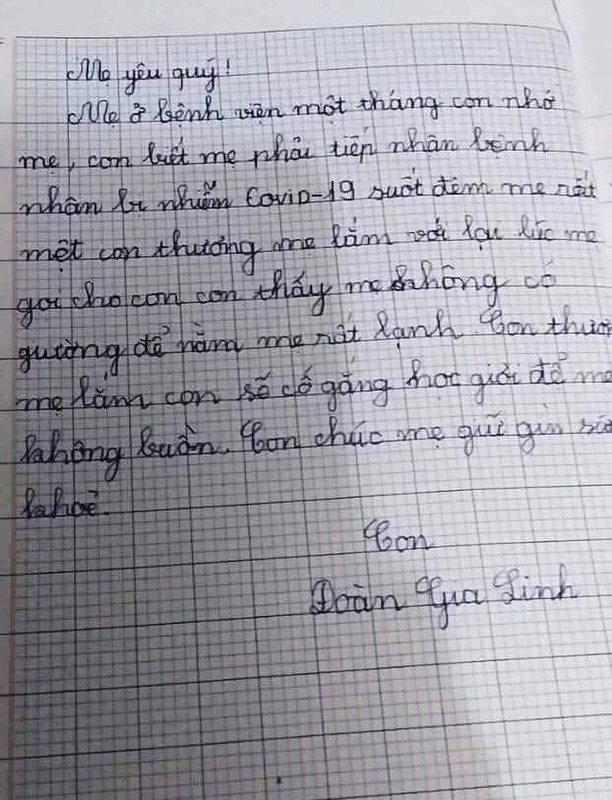 Mẹ yêu quý!
Mẹ ở bệnh viện một tháng con nhớ
mẹ, con biết mẹ phải tiếp nhận bệnh
nhân bị nhiễm Covid-19 suốt đêm mẹ rất
mệt con thương mẹ lắm với lại lúc mẹ
gọi cho con con thấy mẹ không có
gường để nằm mẹ rất lạnh. Con thươ
mẹ lắm con sẽ cố gắng học giỏi để mẹ
không buồn. Con chúc mẹ giữ gìn sứ
khoẻ.
Con
Đoàn Gia Linh